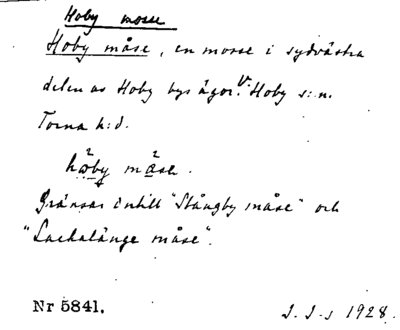 Hoby mosse
Hoby måse, en mosse i sydvästra
delen av Hoby bys ägor. V. Hoby s:n.
Torna h:d.
håby måse.
Gränsar intill "Stångby måse" och
"Lackalänge måse".
Nr 5841.
J. J-s 1928.